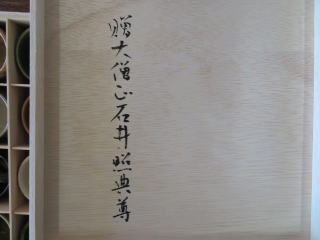 贈大僧正石井照典尊